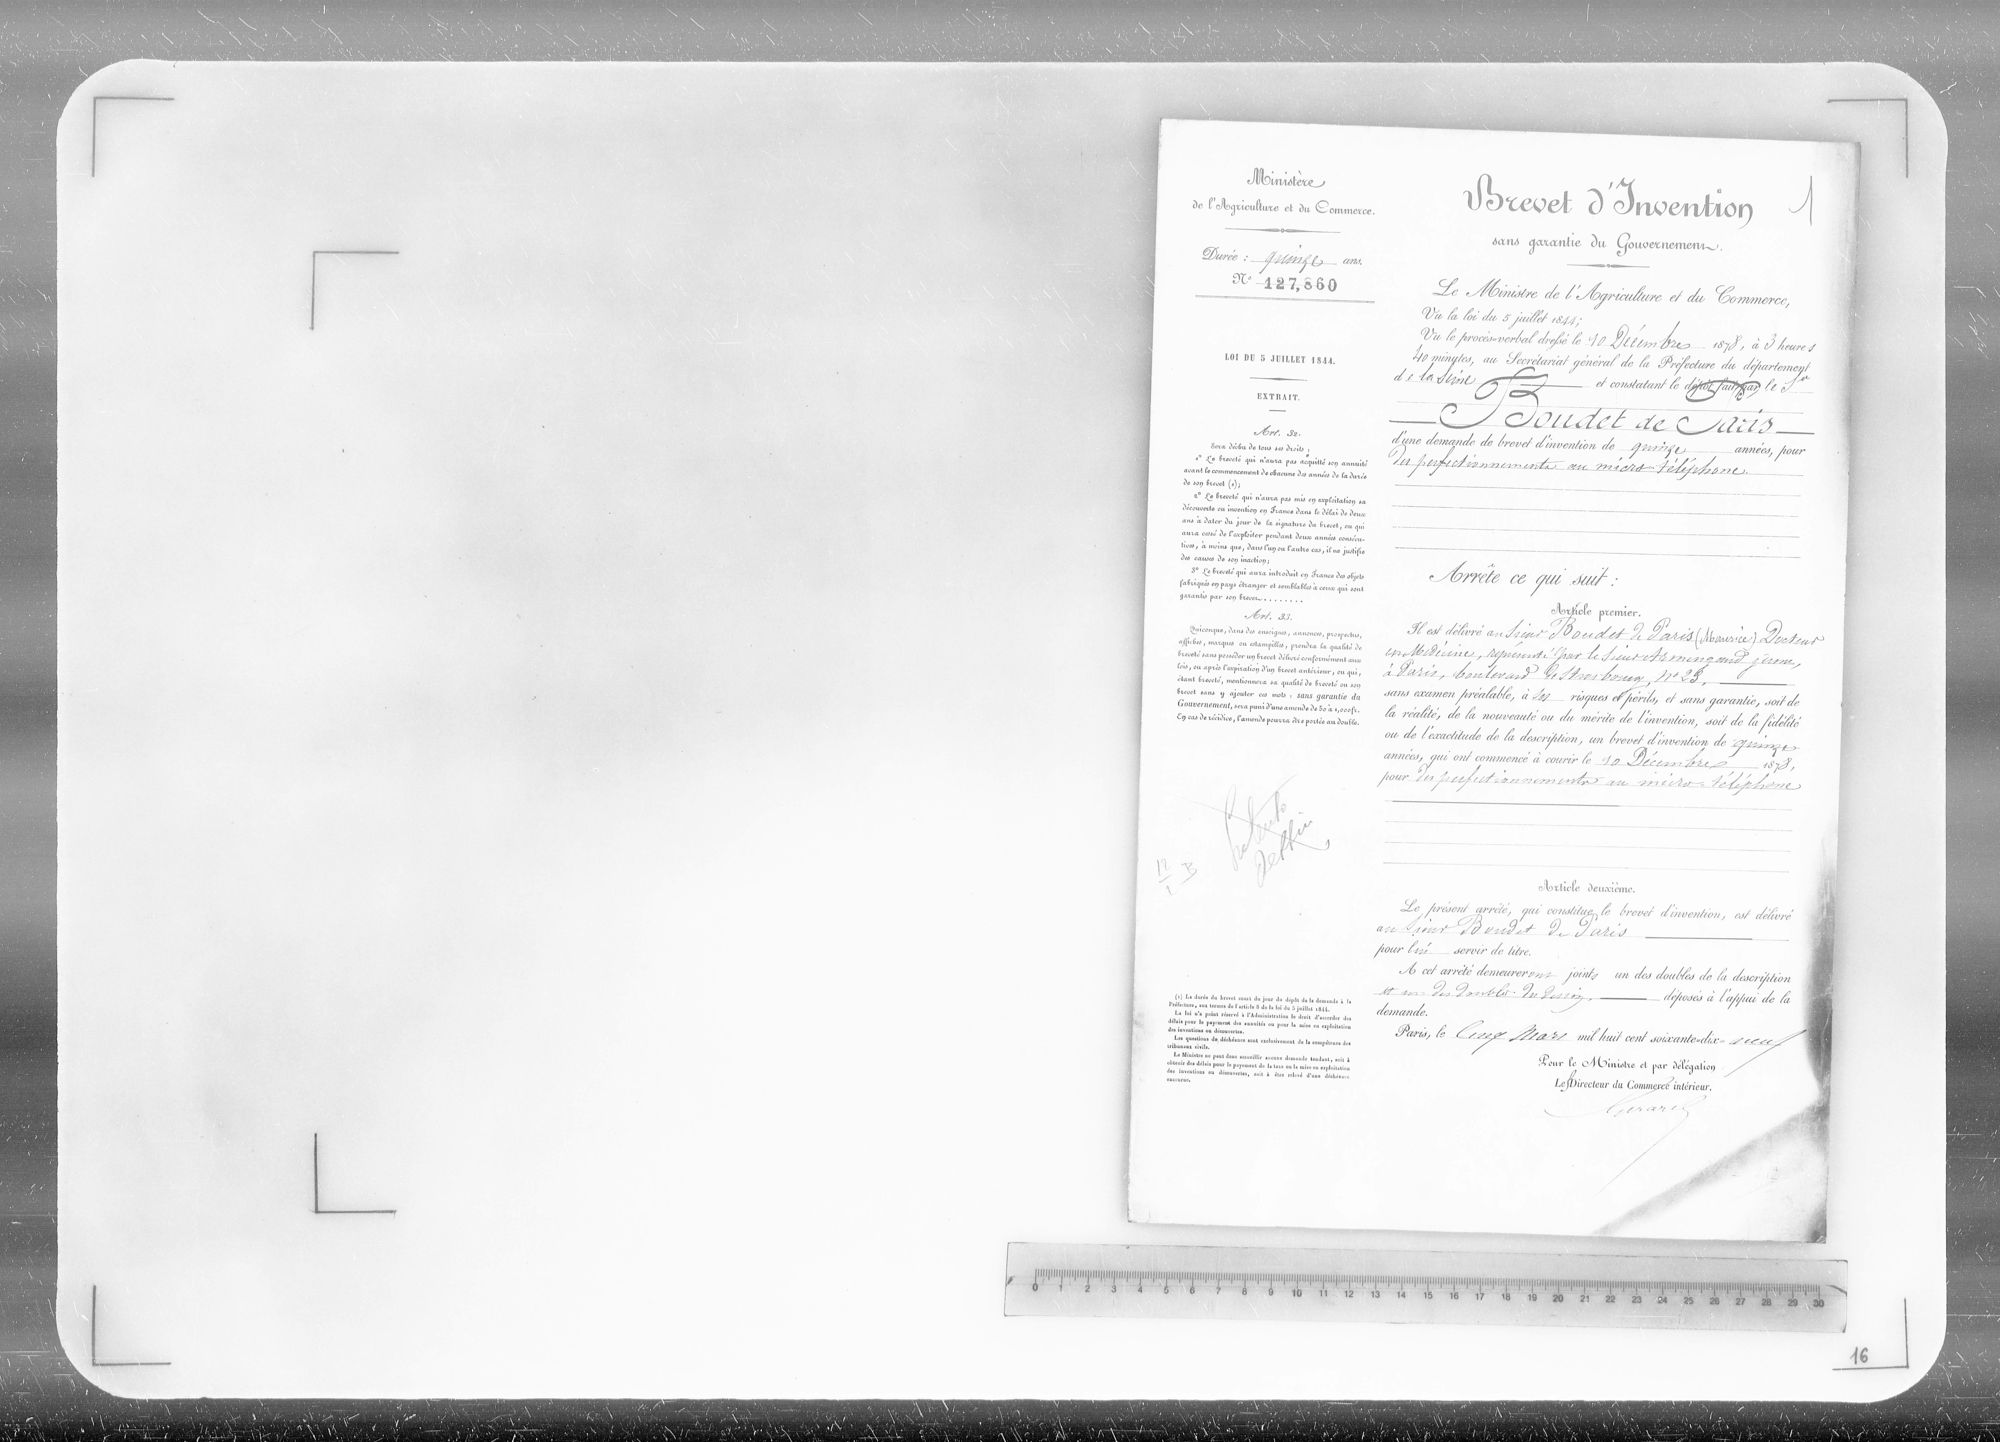 Ministère
de l'Agriculture et du Commerce.
Durée : quinze ans.
N° 127,860
LOI DU 5 JUILLET 1844.
EXTRAIT.
Art. 32.
Sera déchu de tous ses droits :
1° Le breveté qui n'aura pas acquitté son annuité
avant le commencement de chacune des années de la durée
de son brevet (1);
2° Le breveté qui n'aura pas mis en exploitation sa
découverte ou invention en France dans le délai de deux
ans à dater du jour de la signature du brevet, ou qui
aura cessé de l'exploiter pendant deux années consécu-
tives, à moins que, dans l'un ou l'autre cas, il ne justifie
des causes de son inaction;
3° Le breveté qui aura introduit en France des objets
fabriqués en pays étranger et semblables à ceux qui sont
garantis par son brevet........
Art. 33.
Quiconque, dans des enseignes, annonces, prospectus,
affiches, marques ou estampilles, prendra la qualité de
breveté sans posséder un brevet délivré conformément aux
lois, ou après l'expiration d'un brevet antérieur, ou qui,
étant breveté, mentionnera sa qualité de breveté ou son
brevet sans y ajouter ces mots : sans garantie du
Gouvernement, sera puni d'une amende de 50 à 1,000 fr.
En cas de récidive, l'amende pourra être portée au double.
12
1 B
(1) La durée du brevet court du jour du dépôt de la demande à la
Préfecture, aux termes de l'article 8 de la loi du 5 juillet 1844.
La loi n'a point réservé à l'Administration le droit d'accorder des
délais pour le payement des annuités ou pour la mise en exploitation
des inventions ou découvertes.
Les questions de déchéance sont exclusivement de la compétence des
tribunaux civils.
Le Ministre ne peut donc accueillir aucune demande tendant, soit à
obtenir des délais pour le payement de la taxe ou la mise en exploitation
des inventions ou découvertes, soit à être relevé d'une déchéance
encourue.
1
Brevet d'Invention
sans garantie du Gouvernement.
Le Ministre de l'Agriculture et du Commerce,
Vu la loi du 5 juillet 1844;
Vu le procès-verbal dressé le 10 Décembre 1878, à 3 heures
40 minutes, au Secrétariat général de la Préfecture du département
de la Seine et constatant le dépôt fait par le Sr
Boudet de Pâris
d'une demande de brevet d'invention de quinze années, pour
des perfectionnements au micro-téléphone.
Arrête ce qui suit :
Article premier.
Il est délivré au Sieur Boudet de Pâris (Maurice) Docteur
en Médecine, représenté par le Sieur Armengaud jeune,
à Paris, boulevard de Strasbourg, n° 23,
sans examen préalable, à ses risques et périls, et sans garantie, soit de
la réalité, de la nouveauté ou du mérite de l'invention, soit de la fidélité
ou de l'exactitude de la description, un brevet d'invention de quinze
années, qui ont commencé à courir le 10 Décembre 1878,
pour des perfectionnements au micro-téléphone
Article deuxième.
Le présent arrêté, qui constitue le brevet d'invention, est délivré
au Sieur Boudet de Pâris
pour lui servir de titre.
A cet arrêté demeureront joints un des doubles de la description
et un des doubles du dessin, déposés à l'appui de la
demande.
Paris, le Cinq Mars mil huit cent soixante-dix-neuf
Pour le Ministre et par délégation
Le Directeur du Commerce intérieur.
Girard
0 1 2 3 4 5 6 7 8 9 10 11 12 13 14 15 16 17 18 19 20 21 22 23 24 25 26 27 28 29 30
16